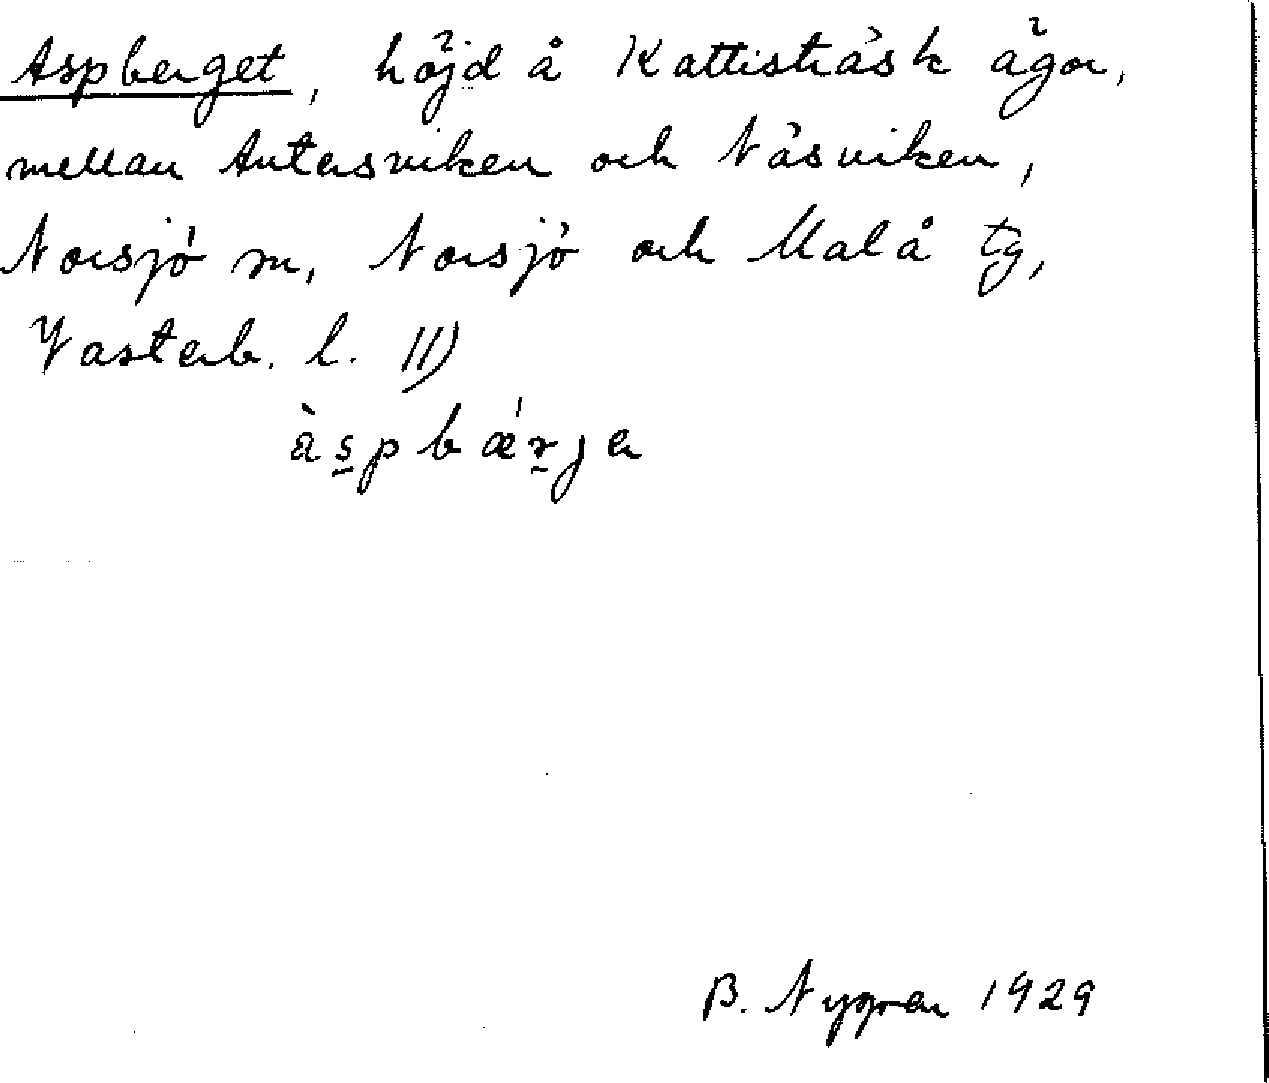 Aspberget, höjd å Kattisträsk ägor,
mellan Antersviken och Näsviken,
Norsjö sn, Norsjö och Malå tg,
Västerb. l. II)
àspbǽrje
B. Nygren 1929